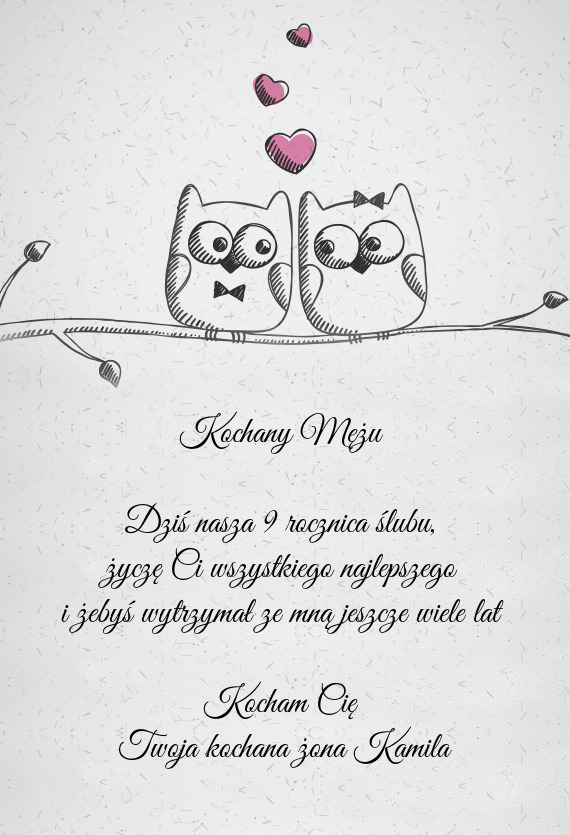 Kochany Mężu
Dziś nasza 9 rocznica ślubu,
życzę Ci wszystkiego najlepszego
i żebyś wytrzymał ze mną jeszcze wiele lat
Kocham Cię
Twoja kochana żona Kamila